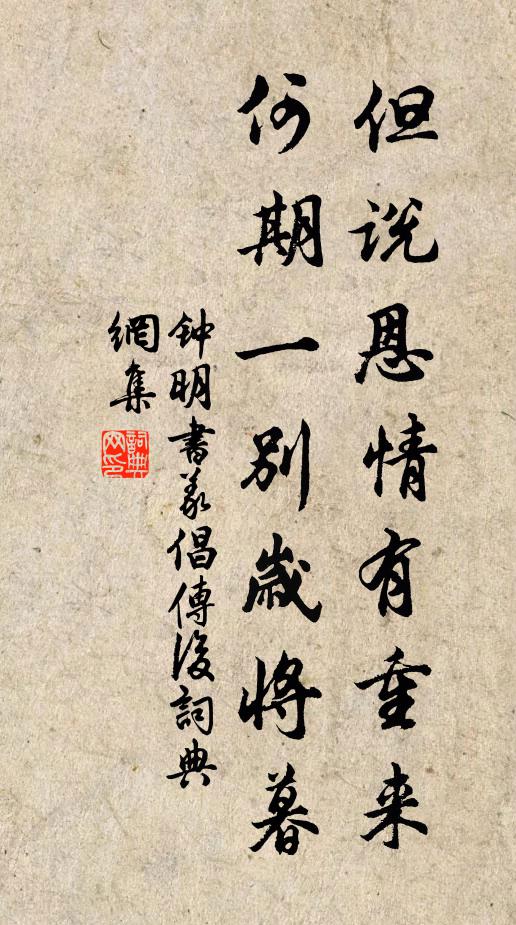 但说恩情有重来
何期一别岁将暮
钟明书义倡传后词典
网集
词典
网印